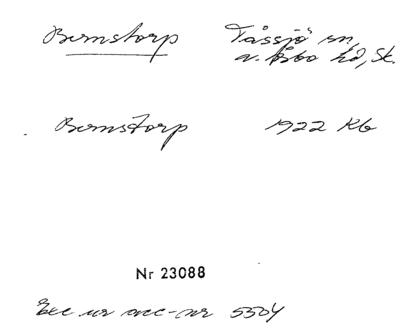 Bernstorp Tåssjö sn,
n. Åsbo hd, Sk.
Bernstorp 1922 Kb
Nr 23088
Exc ur acc-nr 5504